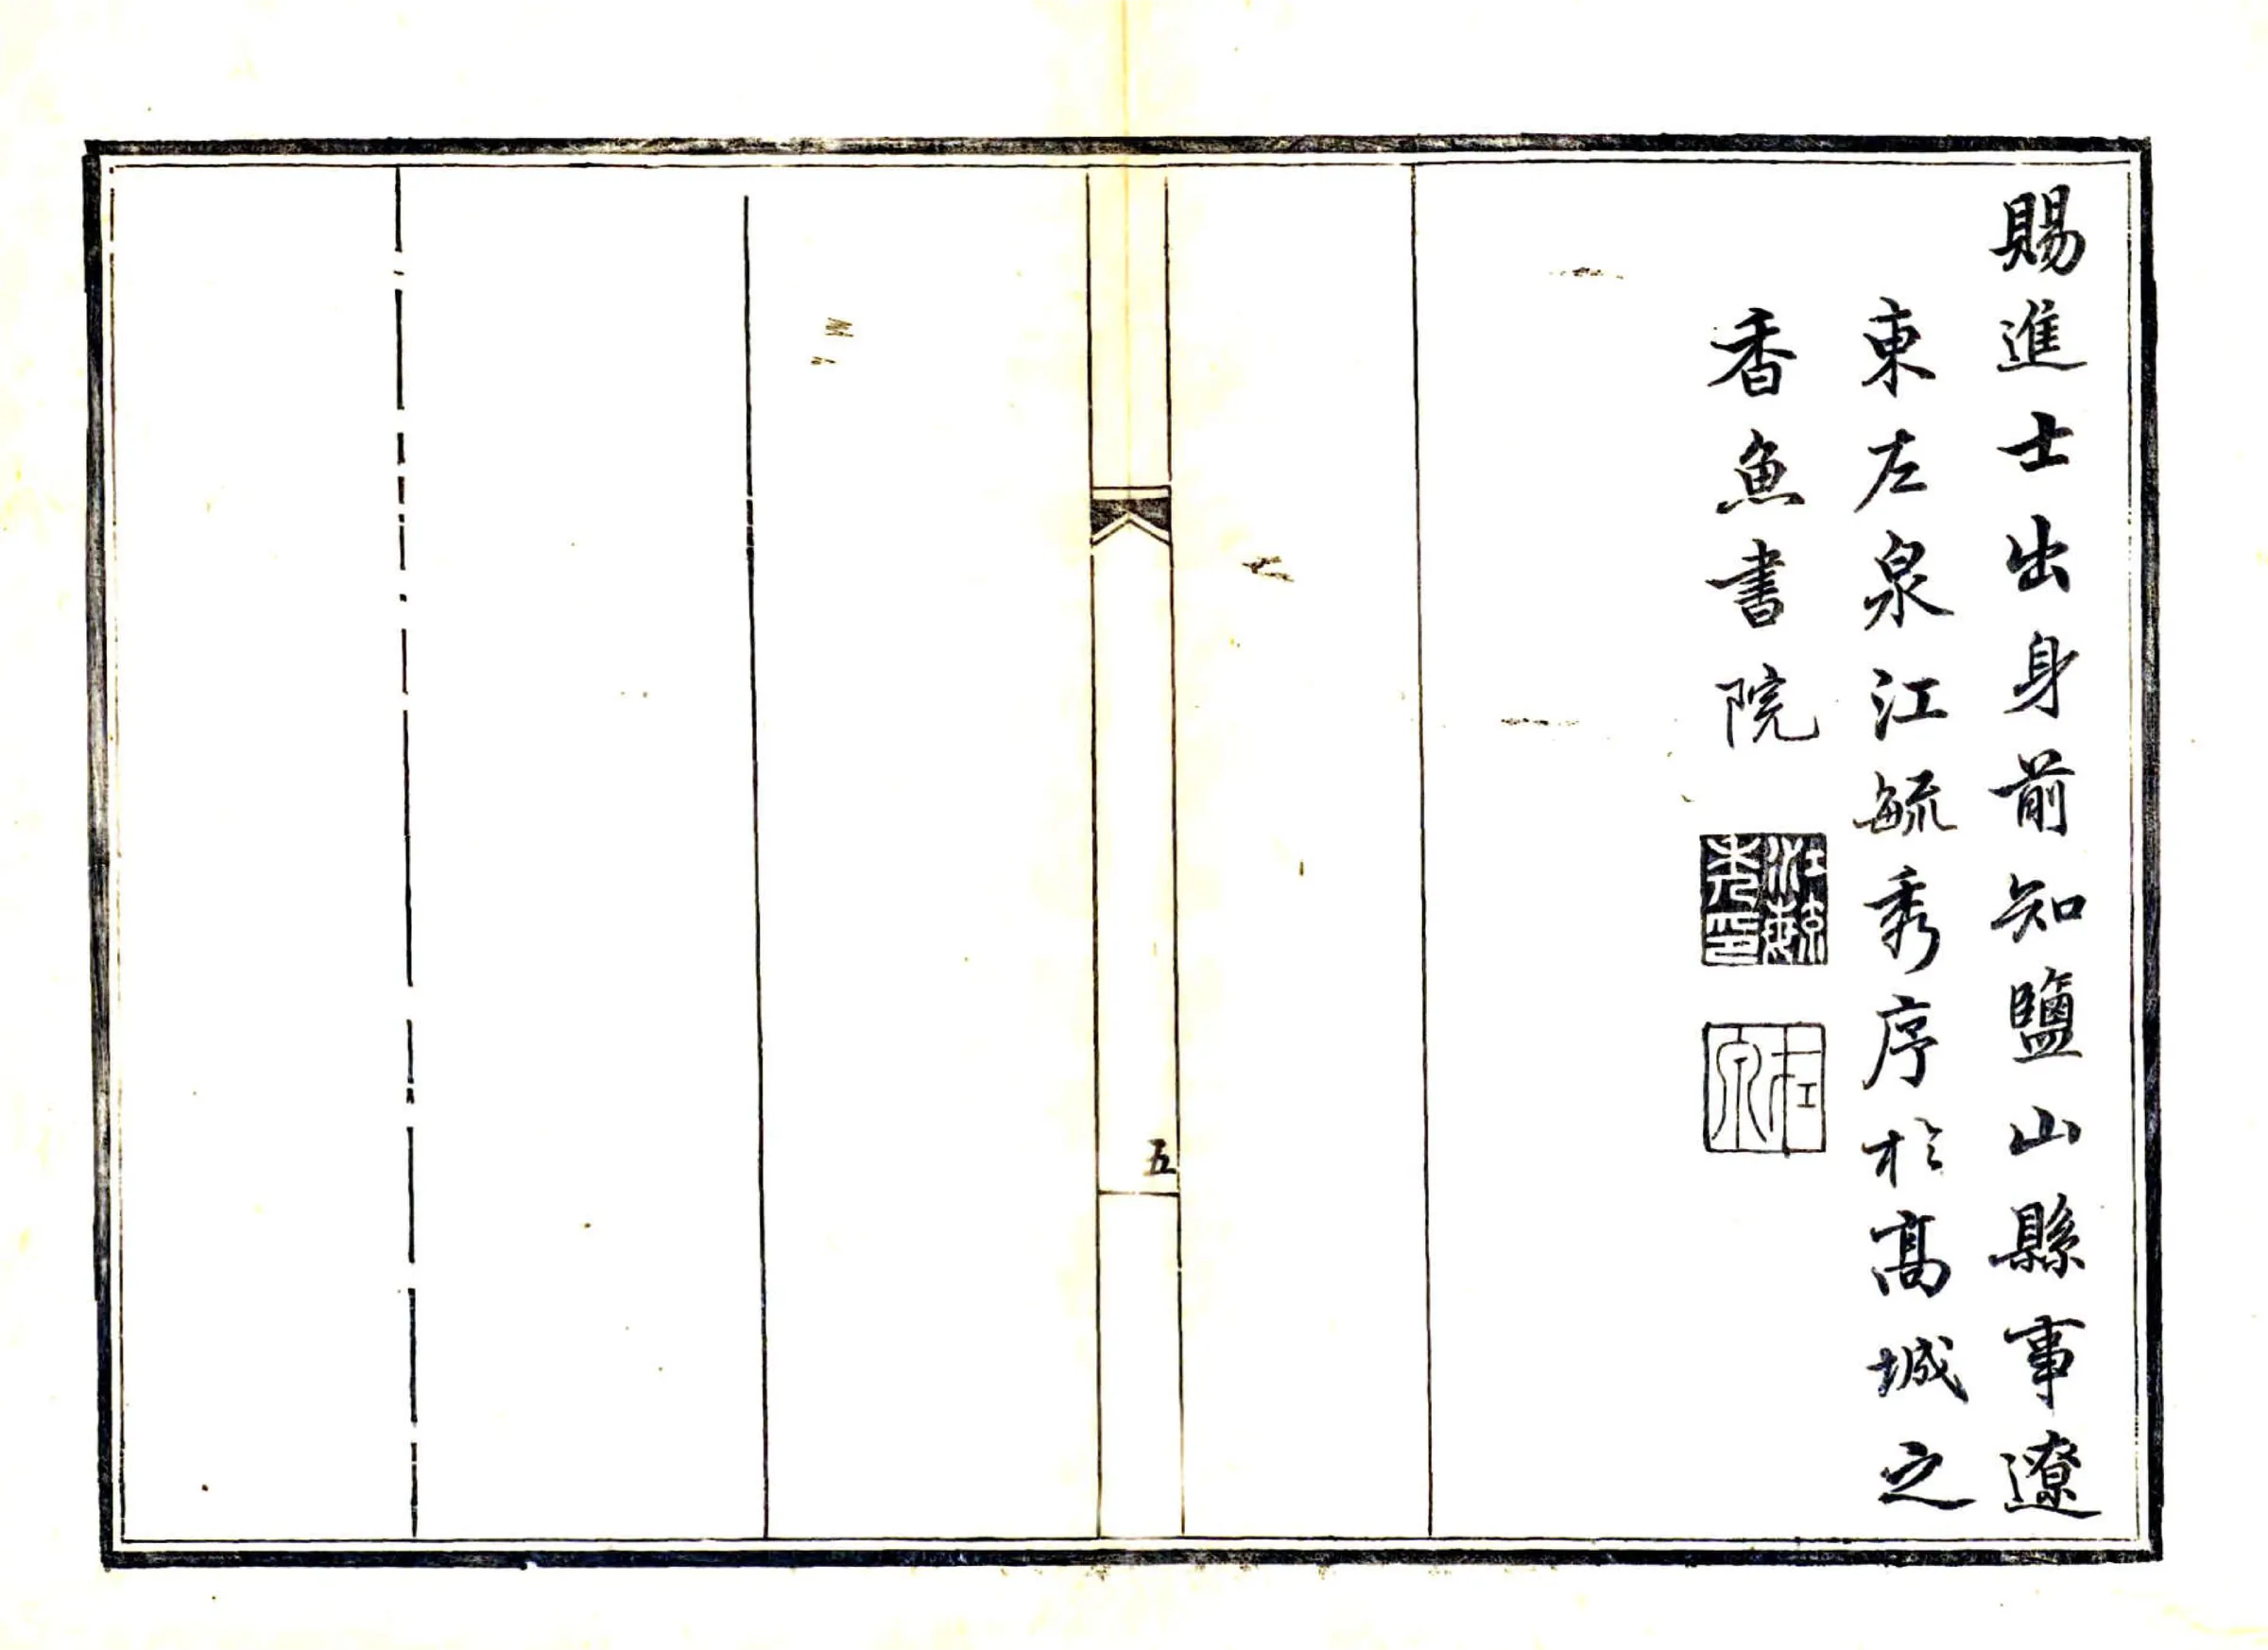 賜進士出身前知鹽山縣事遼
東左泉江毓秀序於高城之
香魚書院
江毓秀印
左泉
五